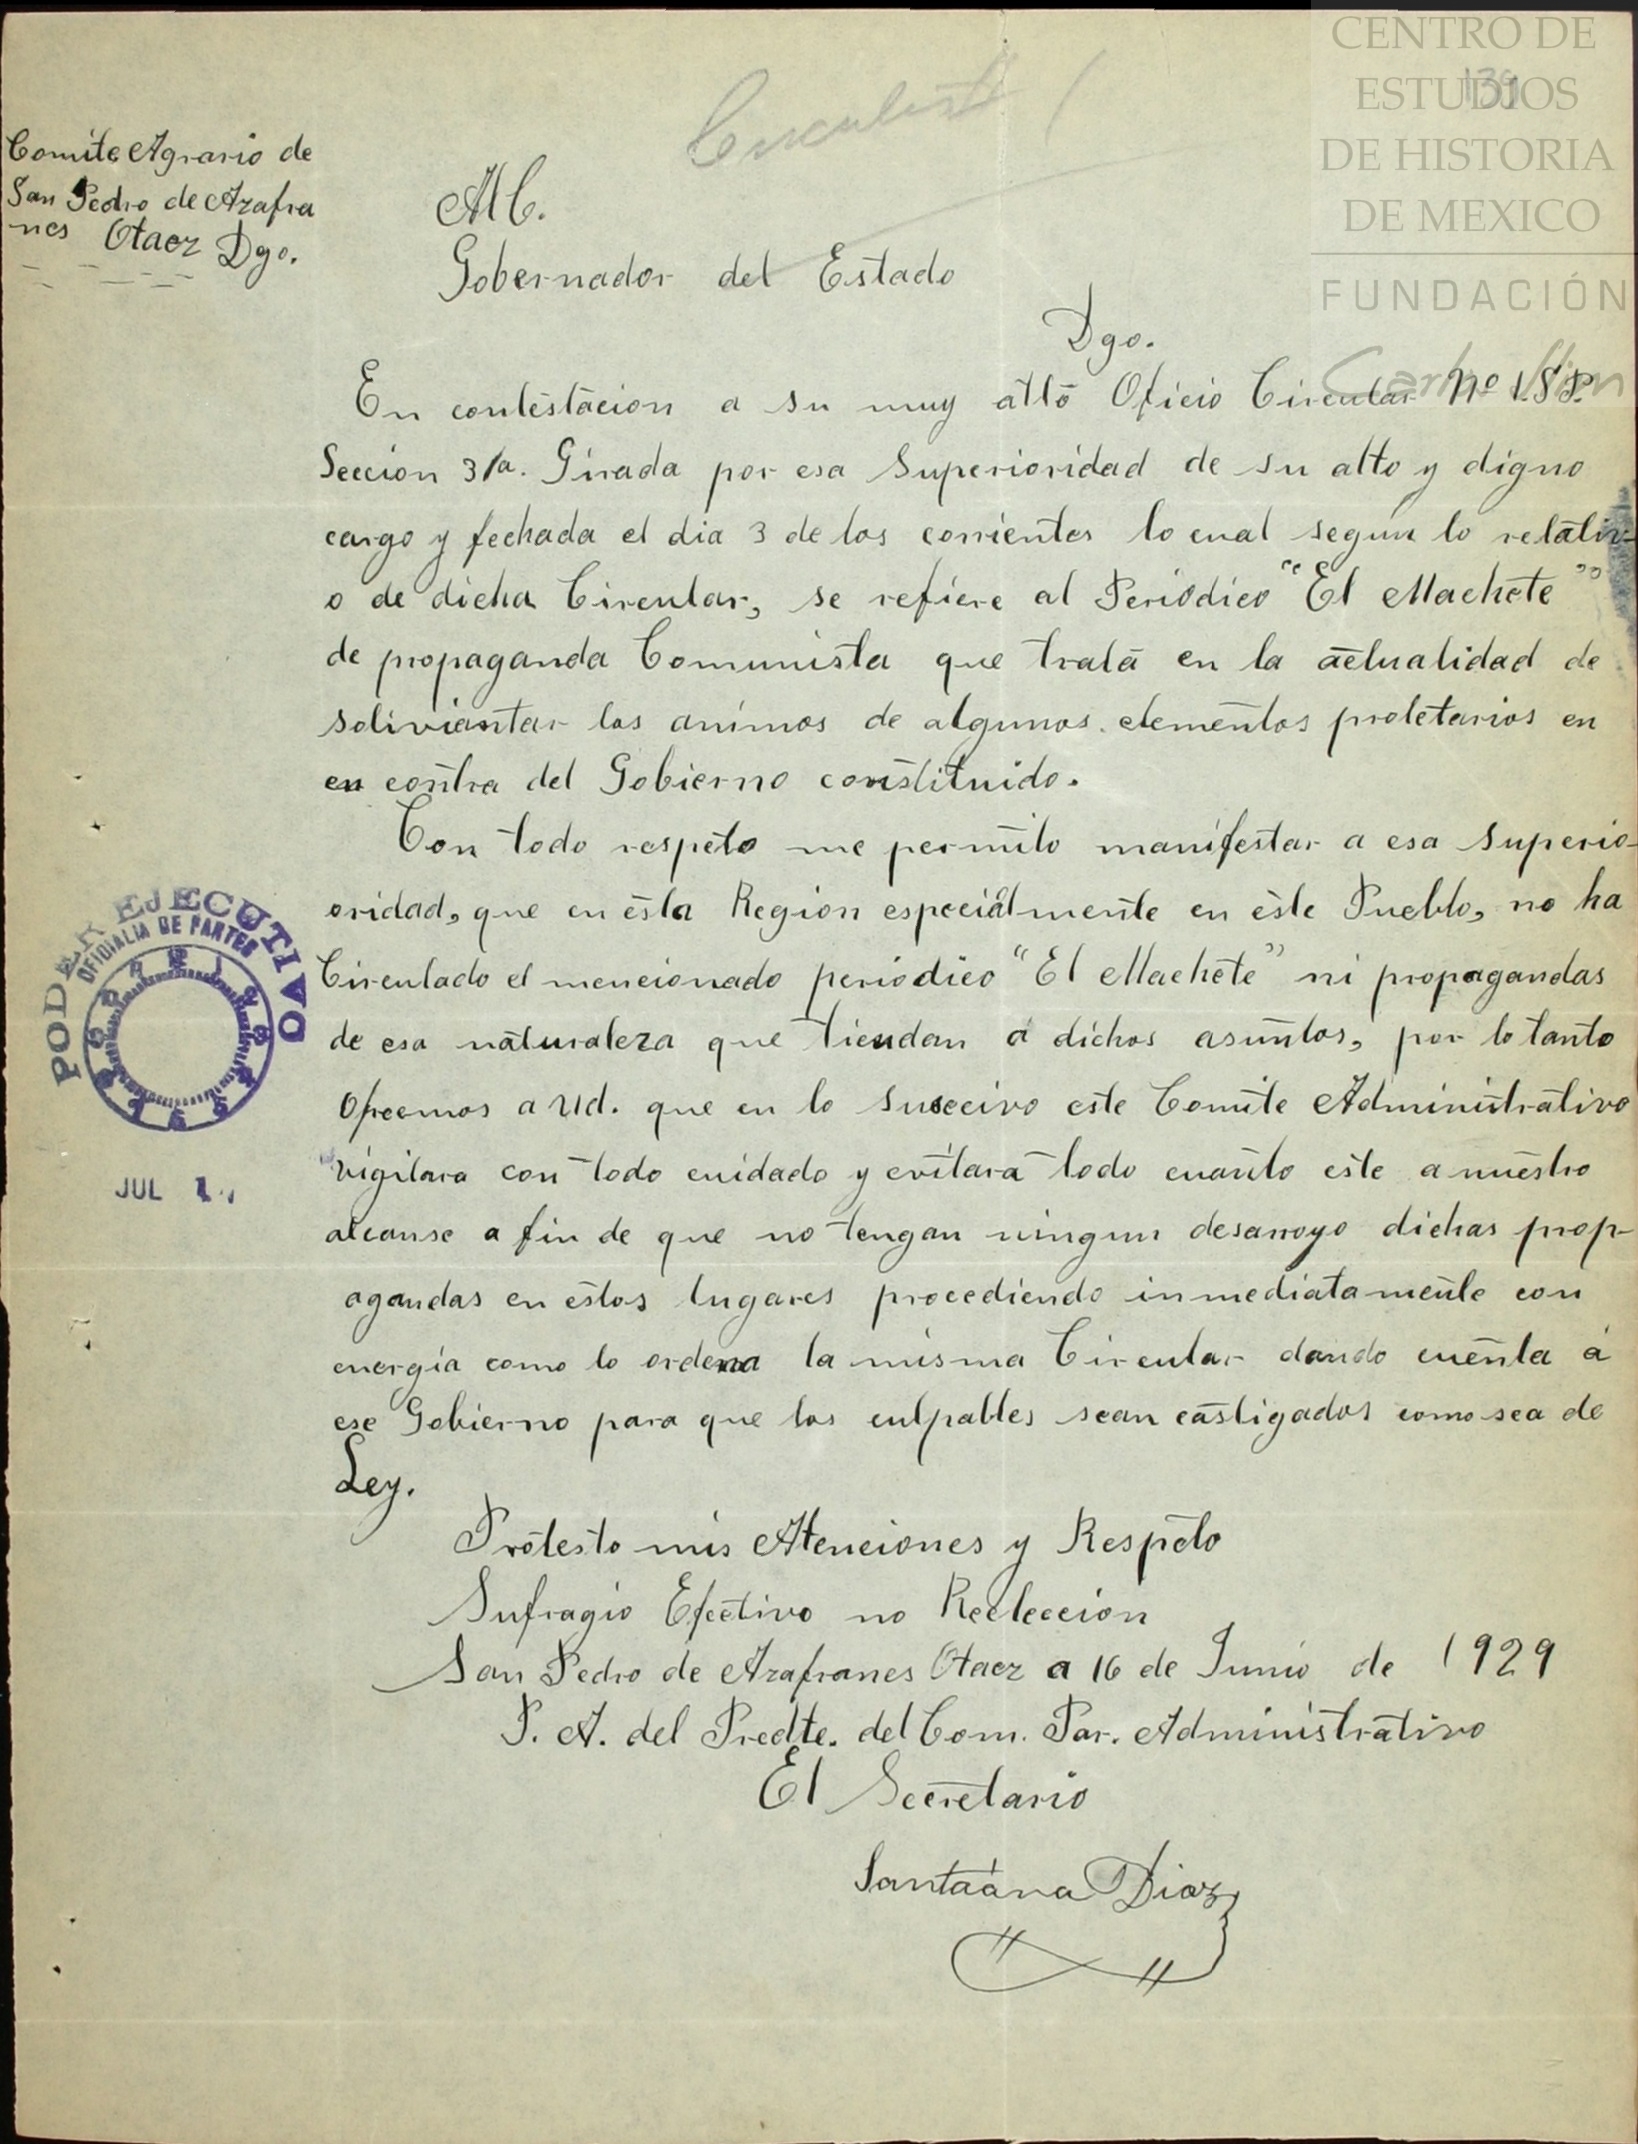 CENTRO DE
ESTUDIOS
DE HISTORIA
DE MEXICO
FUNDACIÓN
139
Comite Agrario de
San Pedro de Azafra
nes Otaez Dgo.
Al C.
Gobernador del Estado
Dgo.
En contestacion a su muy atto Oficio Circular Nº
Seccion 3/a. Girada por esa Superioridad de su alto y digno
cargo y fechada el dia 3 de los corrientes lo cual segun lo relativ-
o de dicha Circular, se refiere al Periódico "El Machete"
de propaganda Comunista que trata en la actualidad de
soliviantar los animos de algunos elementos proletarios en
en contra del Gobierno constituido.
Con todo respeto me permito manifestar a esa Superio-
oridad, que en esta Region especialmente en este Pueblo, no ha
Circulado el mencionado periodico "El Machete" ni propagandas
de esa naturaleza que tiendan á dichos asuntos, por lo tanto
Ofrecmos a Ud. que en lo suscecivo este Comite Administrativo
vigilara con todo cuidado y evitara todo cuanto este a nuestro
alcanse a fin de que no tengan ningun desarroyo dichas prop-
agandas en estos lugares procediendo inmediatamente con
energia como lo ordena la misma Circular dando cuenta á
ese Gobierno para que los culpables sean castigados como sea de
Ley.
Protesto mis Atenciones y Respeto
Sufragio Efectivo no Reeleccion
San Pedro de Azafranes Otaez a 16 de Junio de 1929
P. A. del Predte. del Com. Par. Administrativo
El Secretario
Santaána Diaz
PODER EJECUTIVO
OFICIALIA DE PARTES
JUL